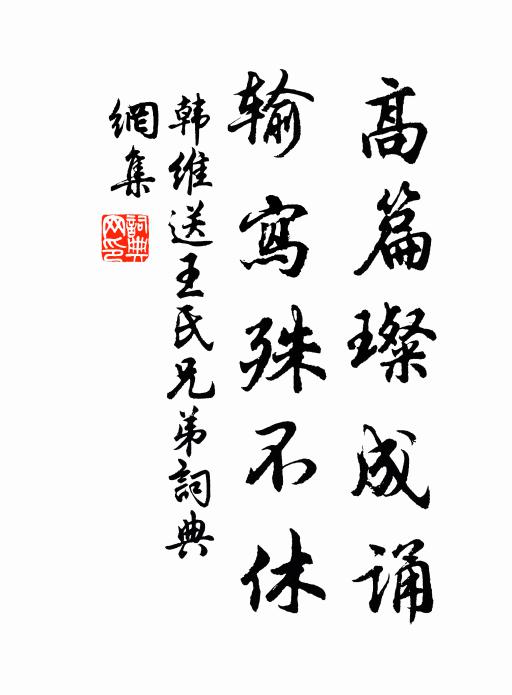 高篇璨成诵
输寫殊不休
韩维送王氏兄弟詞典
網集
詞典網印